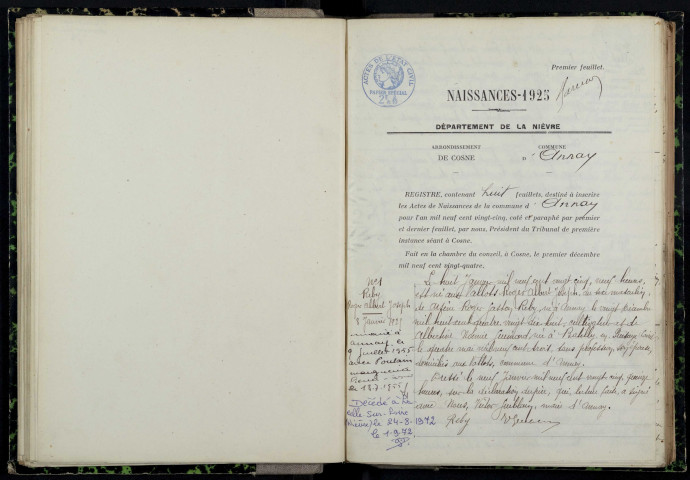 Premier feuillet.
ACTES DE L'ÉTAT CIVIL
PAPIER SPÉCIAL
NAISSANCES-1925
DÉPARTEMENT DE LA NIÈVRE
ARRONDISSEMENT COMMUNE
DE COSNE d'Annay
REGISTRE, contenant huit feuillets, destiné à inscrire
les Actes de Naissances de la commune d'Annay
pour l'an mil neuf cent vingt-cinq, coté et paraphé par premier
et dernier feuillet, par nous, Président du Tribunal de première
instance séant à Cosne.
Fait en la chambre du conseil, à Cosne, le premier décembre
mil neuf cent vingt-quatre.
N°1
Réby
Roger Albert Joseph
8 Janvier 1925
marié à
Annay, le
9 juillet 1955
avec Poulain
le 13.7.1955
Décédé à La
Celle-sur-Loire
(Nièvre) le 24-8-1972
le 1-9-72
Le huit Janvier mil neuf cent vingt cinq, neuf heures,
est né aux Vallots Roger Albert Joseph, du sexe masculin,
de Roger Gaston Réby, né à Annay le vingt
mil huit cent quatre vingt dix huit, cultivateur et de
Albertine née à
le quatre mai mil neuf cent trois, sans profession, son épouse,
domiciliés aux Vallots, commune d'Annay.
Dressé le neuf Janvier mil neuf cent vingt cinq, quinze
heures, sur la déclaration du père, qui, lecture faite, a signé
avec Nous, Victor maire d'Annay.
Réby